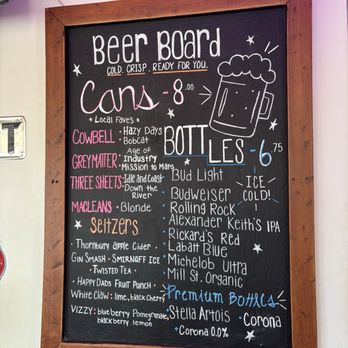 Beer Board
COLD. CRISP. READY FOR YOU.
Cans - 8.00
* Local Faves *
COWBELL • Hazy Days
• BobCat
GREY MATTER • Age of Industry
• Mission to Mars
THREE SHEETS • Idle and Coast
• Down the River
MACLEANS • Blonde
Seltzers
• Thornbury apple Cider •
GIN SMASH • SMIRNOFF ICE
• TWISTED TEA •
• HAPPY DADS FRUIT PUNCH •
White Claw: lime, black cherry
VIZZY: blueberry Pomegranate,
blackberry lemon
BOTTLES - 6.75
• Bud Light
• Budweiser
• Rolling Rock
• Alexander Keith's IPA
• Rickard's Red
• Labatt Blue
• Michelob Ultra
• Mill St. Organic
ICE
COLD!
Premium Bottles
• Stella Artois • Corona
• Corona 0.0%
T